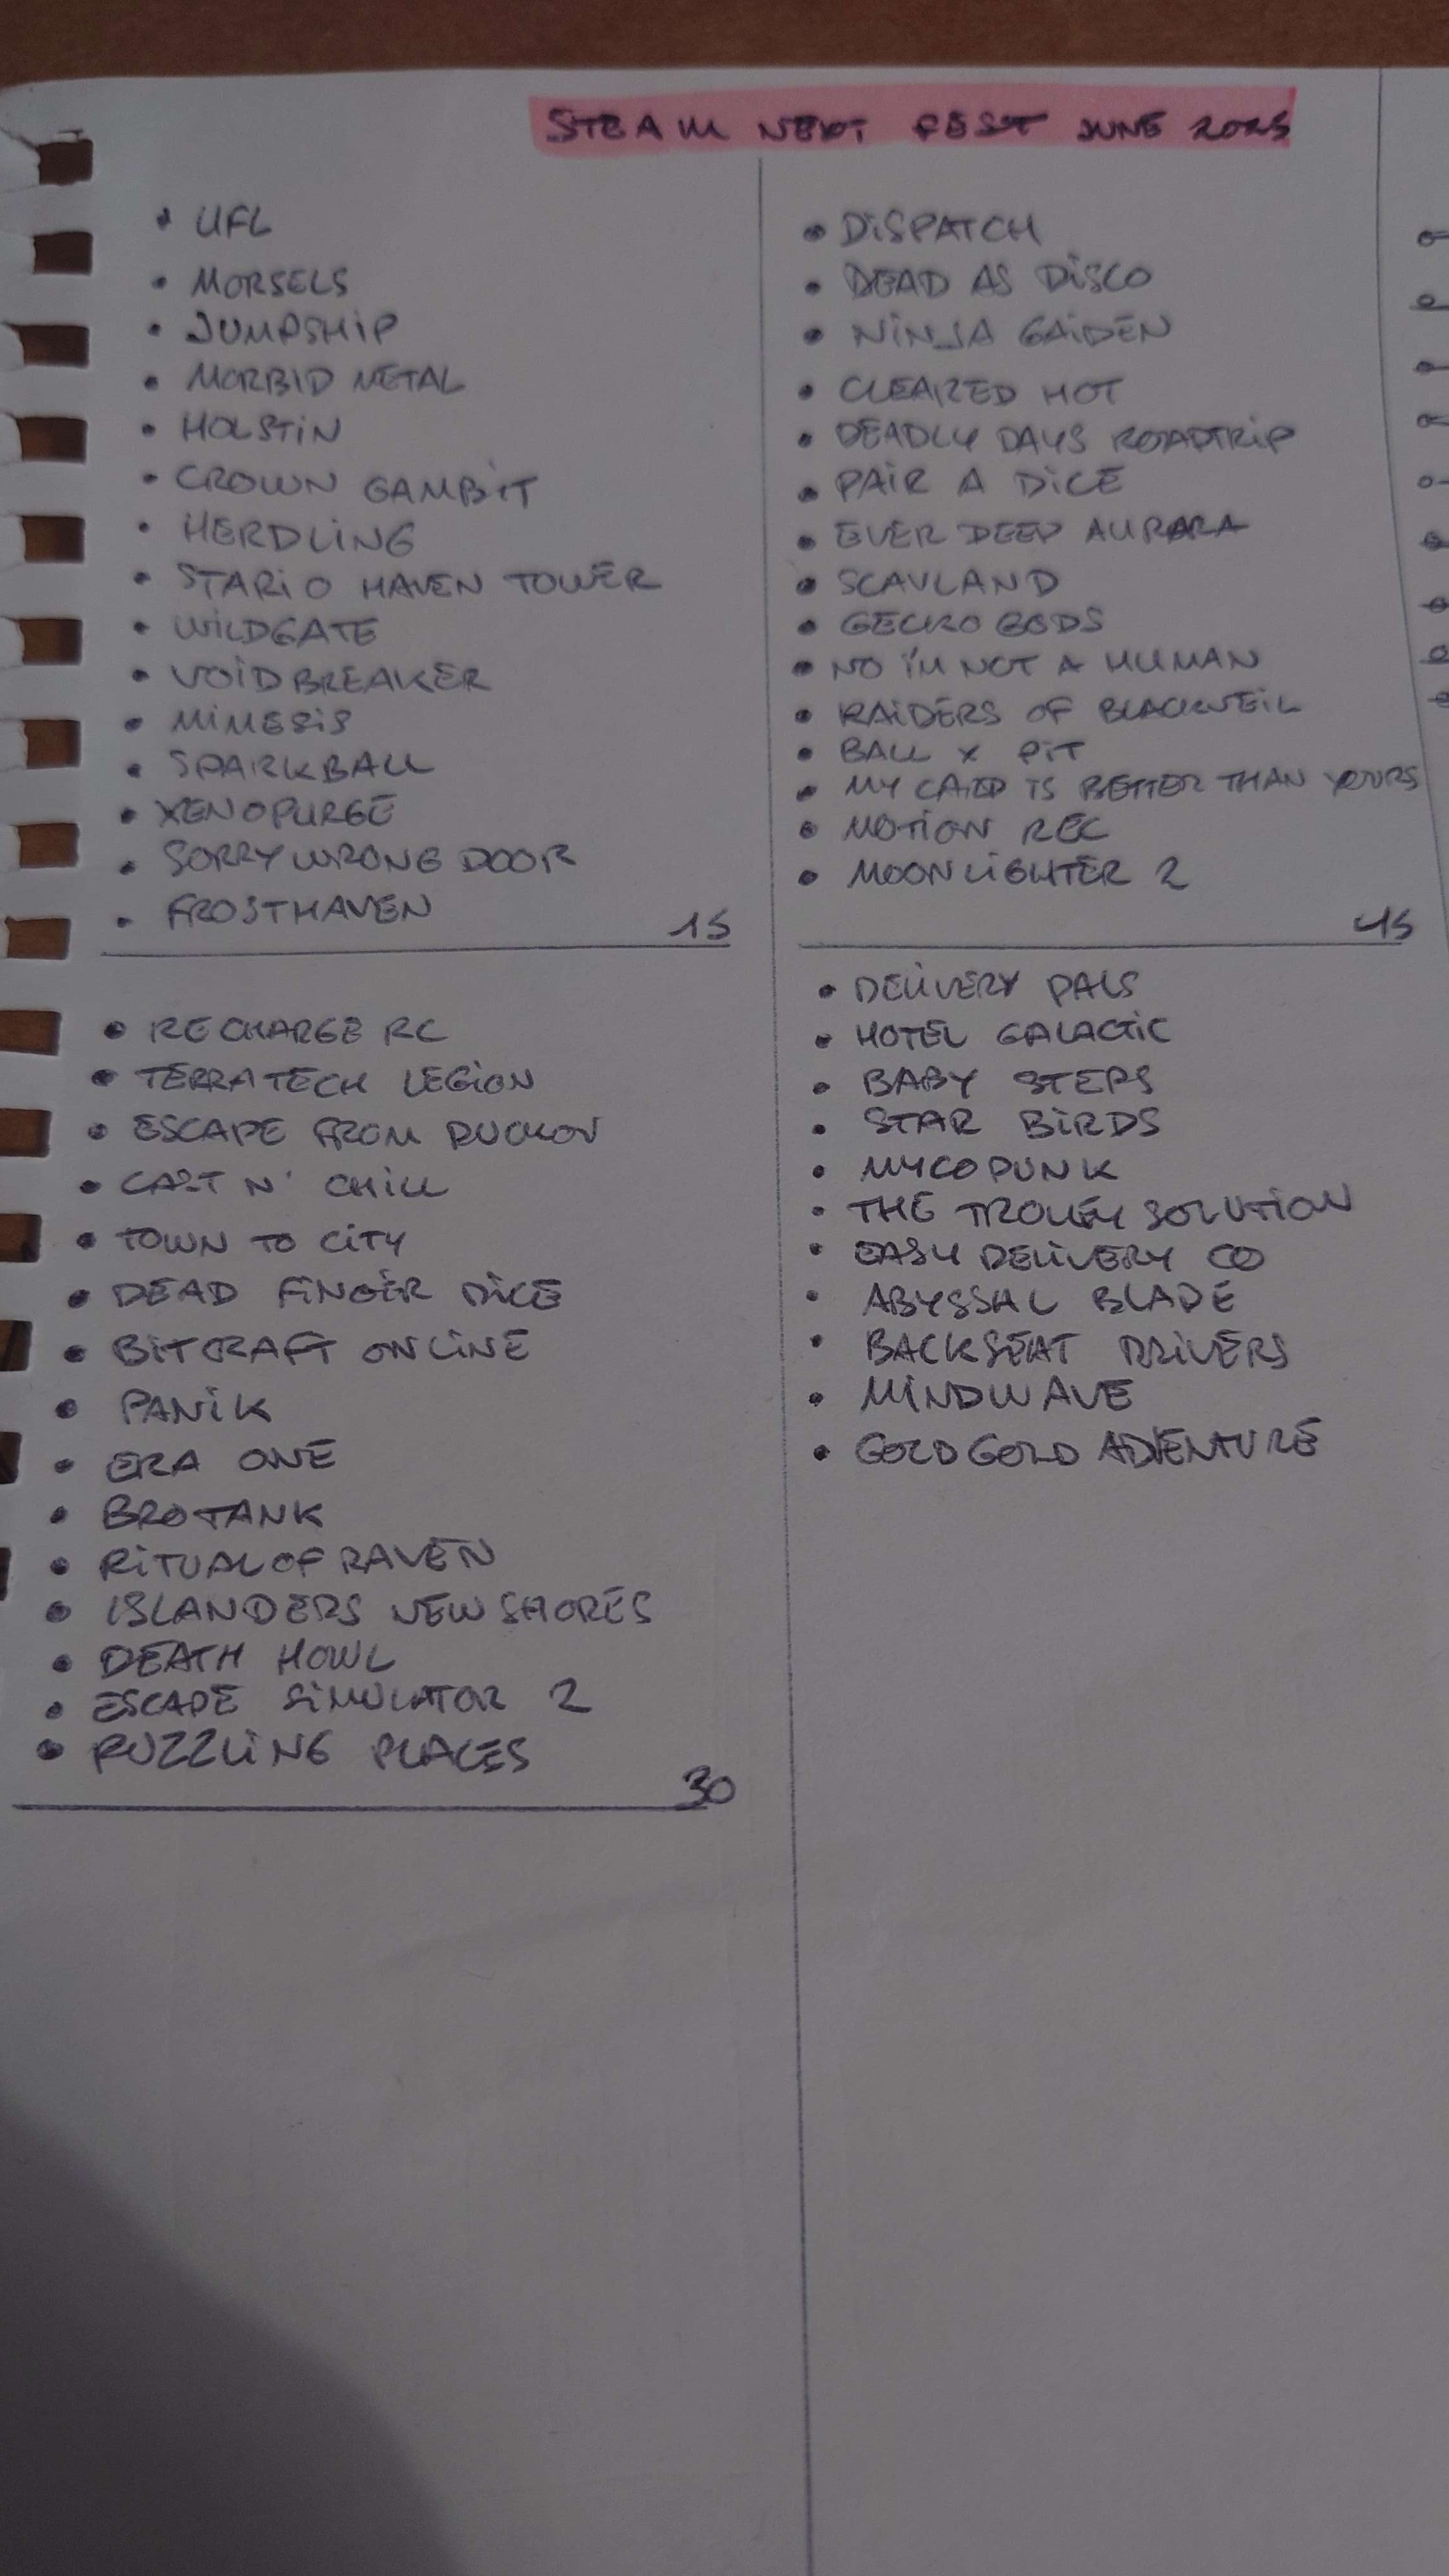 STEAM NEXT FEST JUNE 2025
• UFL
• MORSELS
• JUMPSHIP
• MORBID METAL
• HOLSTIN
• CROWN GAMBIT
• HERDLING
• STARIO HAVEN TOWER
• WILDGATE
• VOIDBREAKER
• MIMESIS
• SPARKBALL
• XENOPURGE
• SORRY WRONG DOOR
• FROSTHAVEN
15
• RECHARGE RC
• TERRATECH LEGION
• ESCAPE FROM DUCKOV
• CAST N' CHILL
• TOWN TO CITY
• DEAD FINGER DICE
• BITCRAFT ONLINE
• PANIK
• ERA ONE
• BROTANK
• RITUAL OF RAVEN
• ISLANDERS NEW SHORES
• DEATH HOWL
• ESCAPE SIMULATOR 2
• PUZZLING PLACES
30
• DISPATCH
• DEAD AS DISCO
• NINJA GAIDEN
• CLEARED HOT
• DEADLY DAYS ROADTRIP
• PAIR A DICE
• EVER DEEP AURARA
• SCAVLAND
• GECKO GODS
• NO I'M NOT A HUMAN
• RAIDERS OF BLACKVEIL
• BALL X PIT
• MY CARD IS BETTER THAN YOURS
• MOTION REC
• MOONLIGHTER 2
45
• DELIVERY PALS
• HOTEL GALACTIC
• BABY STEPS
• STAR BIRDS
• MYCOPUNK
• THE TROLLEY SOLUTION
• EASY DELIVERY CO
• ABYSSAL BLADE
• BACKSEAT DRIVERS
• MINDWAVE
• GOLD GOLD ADVENTURE